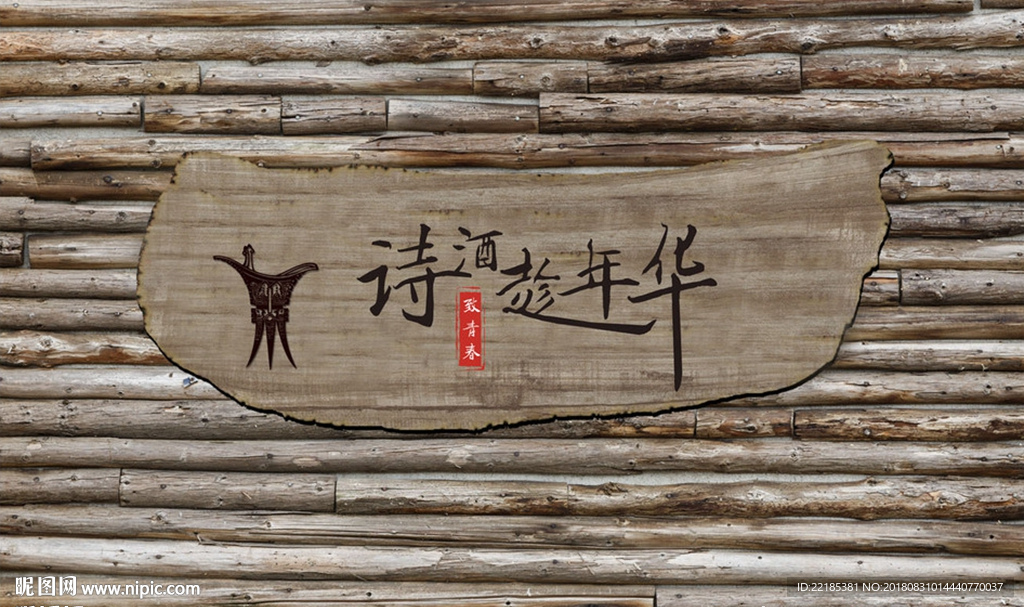 诗酒趁年华
致青春
昵图网 www.nipic.com
ID:22185381 NO:20180831014440770037